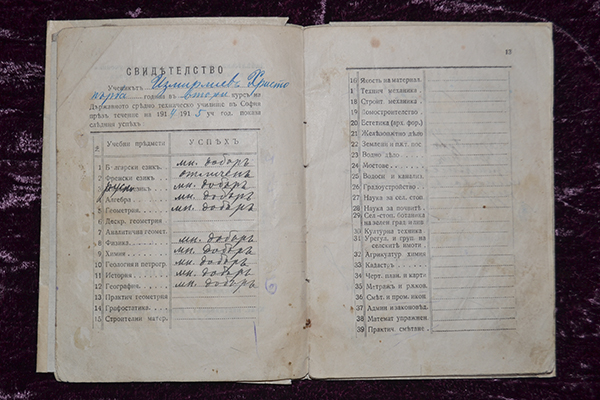 СВИДѢТЕЛСТВО
Ученикътъ Измирлиевъ Христо
първа година въ втори курсъ на
Държавното срѣдно техническо училище въ София
прѣзъ течение на 1914/1915 уч. год. показа
слѣдния успѣхъ:
№ Учебни прѣдмети УСПѢХЪ
1 Български езикъ мн. добъръ
2 Френски езикъ отличенъ
3 езикъ мн. добъръ
4 Алгебра мн. добъръ
5 Геометрия мн. добъръ
6 Дескр. геометрия
7 Аналитична геомет.
8 Физика мн. добъръ
9 Химия мн. добъръ
10 Геология и петрогр. мн. добъръ
11 История мн. добъръ
12 География мн. добъръ
13 Практич геометрия
14 Графостатика
15 Строителни матер.
16 Якость на материал.
17 Технич механика
18 Строит механика
19 Домостроителство
20 Естетика (арх. фор.)
21 Желѣзопѫтно дѣло
22 Земяни и пѫт. пос
23 Водно дѣло
24 Мостове
25 Водосн и канализ.
26 Градоустройство
27 Наука за сел. стоп.
28 Наука за почвитѣ
29 Сел.-стоп. ботаника
на зелен град и лив
30 Културна техника
31 Урегул. и груп. на
селскитѣ имоти
32 Агрикултур химия
33 Кадастъръ
34 Черт. план. и карти
35 Метражъ и раком.
36 Смѣт. и пром. икон.
37 Админ и законовѣд.
38 Математ упражнен.
39 Практич. смѣтане